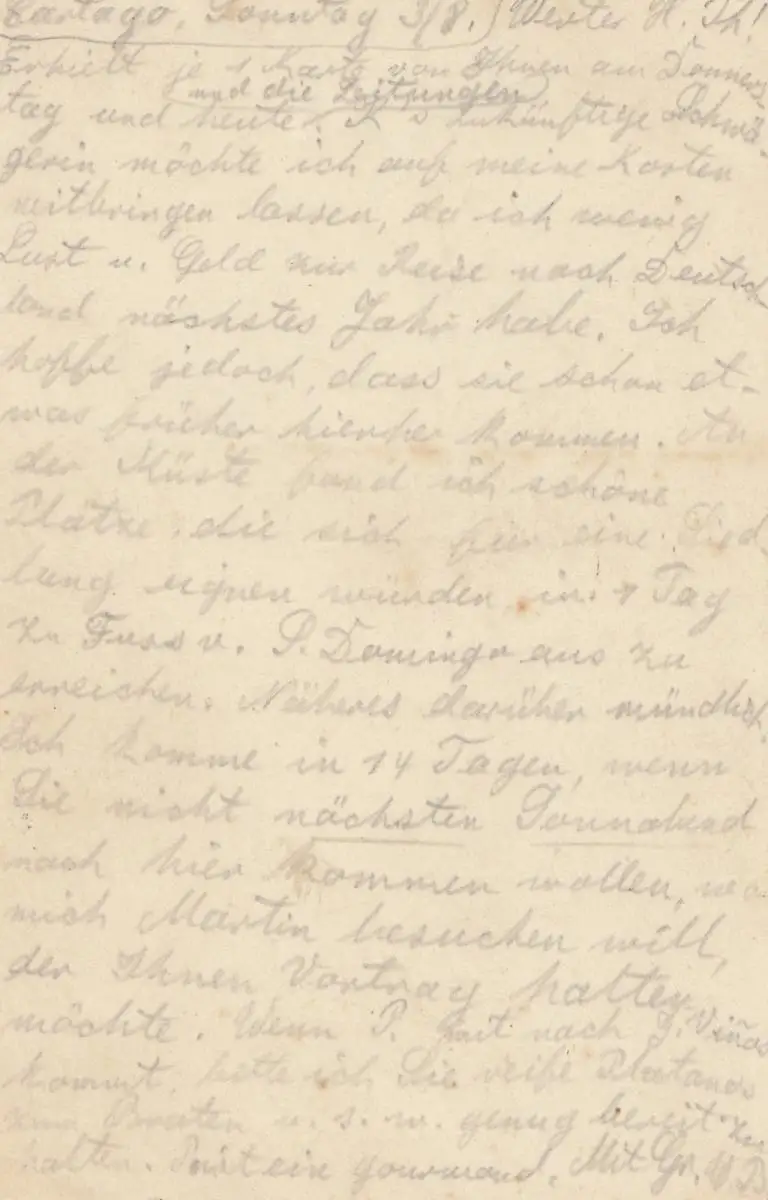 Cartago, Sonntag 3/8.) Werter H. Th!
Erhielt je 1 Karte von Ihnen am Donners-
und die Zeitungen
tag und heute. zukünftige Schwä-
gerin möchte ich auf meine Kosten
mitbringen lassen, da ich wenig
Lust u. Geld zur Reise nach Deutsch-
land nächstes Jahr habe. Ich
hoffe jedoch, dass sie schon et-
was früher hierher kommen. An
der Küste fand ich schöne
Plätze, die sich für eine Sied-
lung eignen würden in 1 Tag
zu Fuss v. S. Domingo aus zu
erreichen. Näheres darüber mündlich.
Ich komme in 14 Tagen, wenn
Sie nicht nächsten Sonnabend
nach hier kommen wollen, wo
mich Martin besuchen will,
der Ihnen Vortrag halten
möchte. Wenn P. mit nach J. Viñas
kommt, bitte ich Sie reife Platanos
zum Braten u. s. w. genug bereit zu
halten. ein gourmand. Mit Gr.